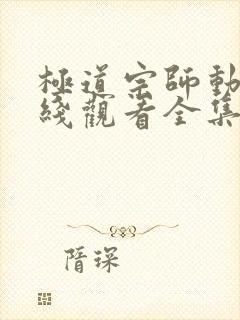 極道宗師動
綫觀看全集
隋琛